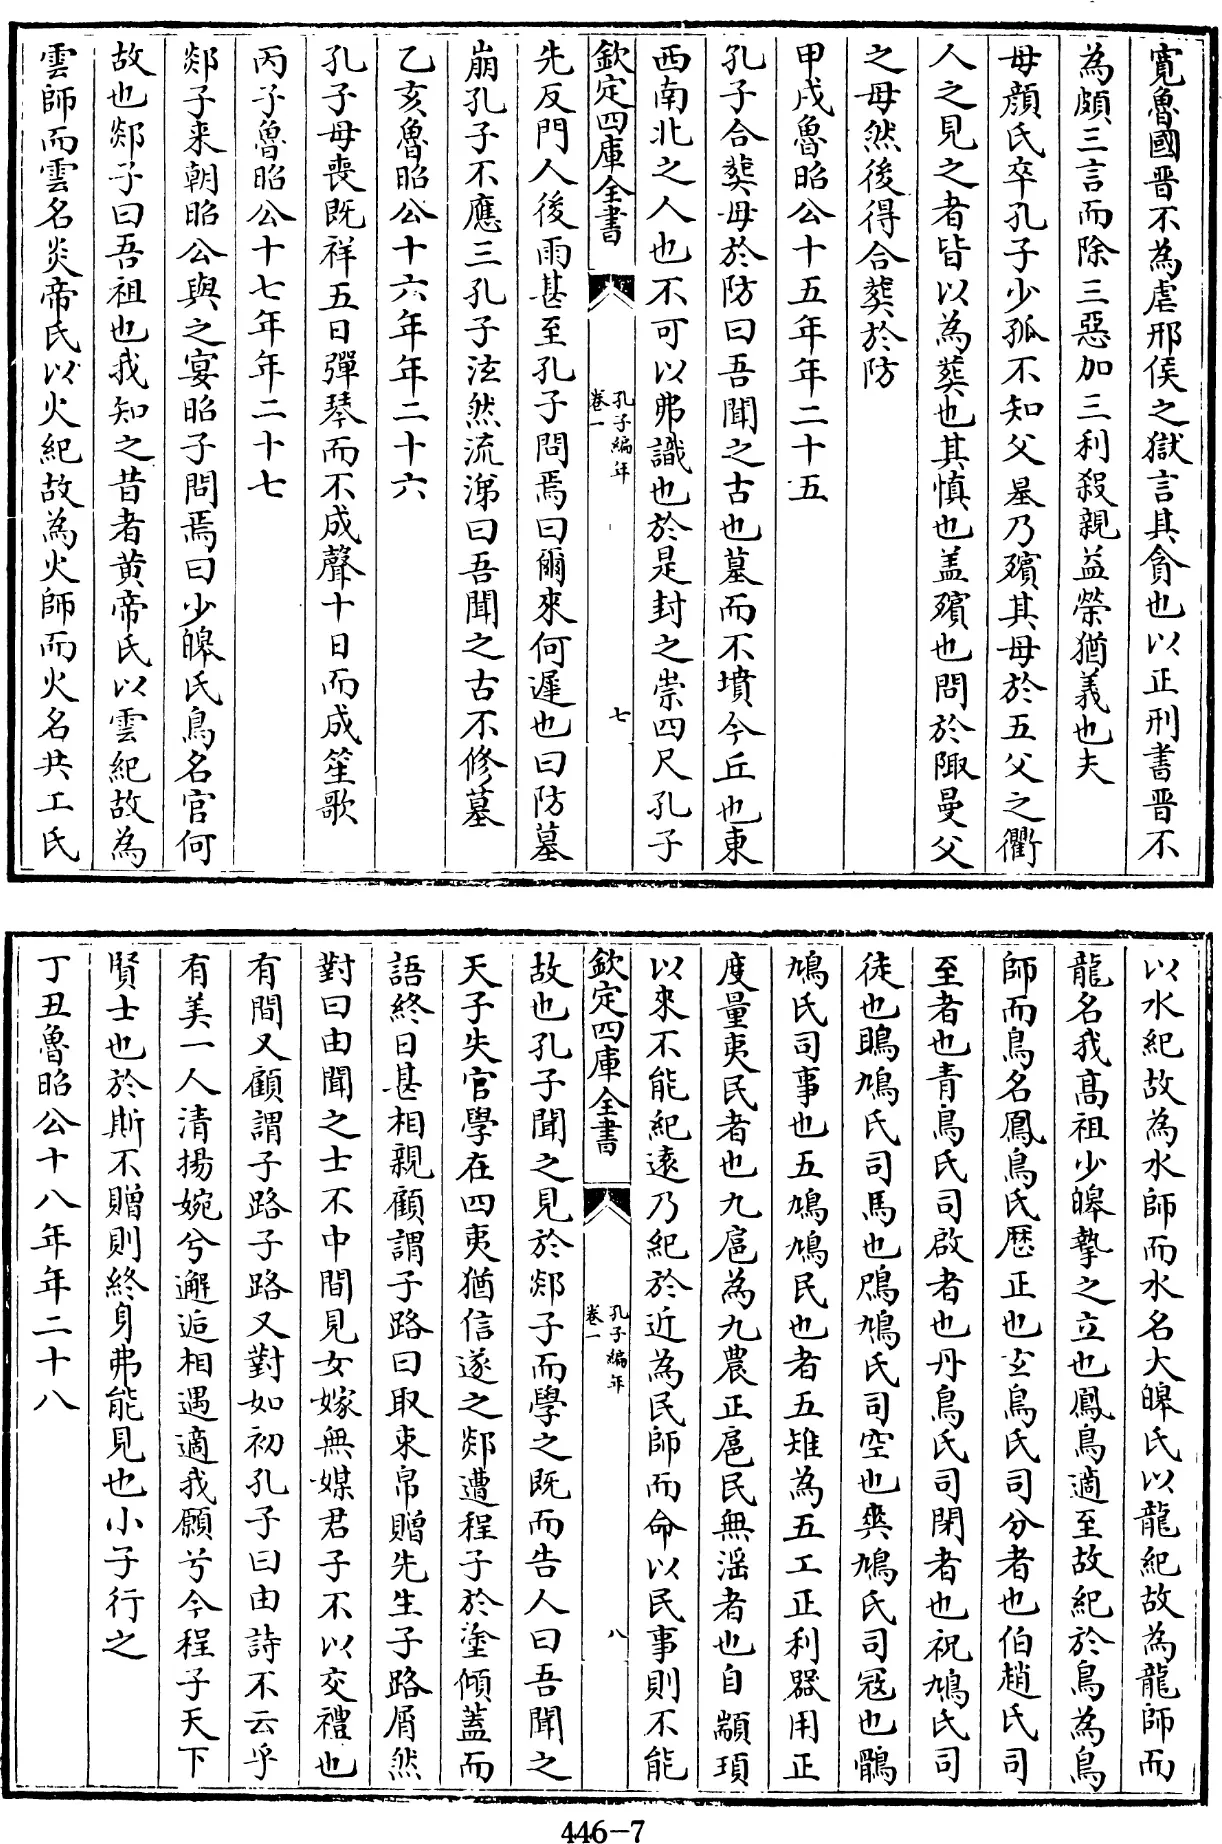 寛魯國晋不為虐邢侯之獄言其貪也以正刑書晋不
為頗三言而除三惡加三利殺親益榮猶義也夫
母顔氏卒孔子少孤不知父墓乃殯其母於五父之衢
人之見之者皆以為葬也其慎也盖殯也問於陬曼父
之母然後得合葬於防
甲戌魯昭公十五年年二十五
孔子合葬母於防曰吾聞之古也墓而不墳今丘也東
西南北之人也不可以弗識也於是封之崇四尺孔子
欽定四庫全書
孔子編年
卷一
七
先反門人後雨甚至孔子問焉曰爾來何遲也曰防墓
崩孔子不應三孔子泫然流涕曰吾聞之古不修墓
乙亥魯昭公十六年年二十六
孔子母喪既祥五日彈琴而不成聲十日而成笙歌
丙子魯昭公十七年年二十七
郯子来朝昭公與之宴昭子問焉曰少皥氏鳥名官何
故也郯子曰吾祖也我知之昔者黄帝氏以雲紀故為
雲師而雲名炎帝氏以火紀故為火師而火名共工氏
以水紀故為水師而水名大皥氏以龍紀故為龍師而
龍名我髙祖少皥摯之立也鳳鳥適至故紀於鳥為鳥
師而鳥名鳳鳥氏歴正也𤣥鳥氏司分者也伯趙氏司
至者也青鳥氏司啟者也丹鳥氏司閉者也祝鳩氏司
徒也鴡鳩氏司馬也鳲鳩氏司空也爽鳩氏司冦也鶻
鳩氏司事也五鳩鳩民也者五雉為五工正利器用正
度量夷民者也九扈為九農正扈民無滛者也自顓頊
以來不能紀逺乃紀於近為民師而命以民事則不能
欽定四庫全書
孔子編年
卷一
八
故也孔子聞之見於郯子而學之既而告人曰吾聞之
天子失官學在四夷猶信遂之郯遭程子於塗傾蓋而
語終日甚相親顧謂子路曰取束帛贈先生子路屑然
對曰由聞之士不中間見女嫁無媒君子不以交禮也
有間又顧謂子路子路又對如初孔子曰由詩不云乎
有美一人清揚婉兮邂逅相遇適我願兮今程子天下
賢士也於斯不贈則終身弗能見也小子行之
丁丑魯昭公十八年年二十八
446-7